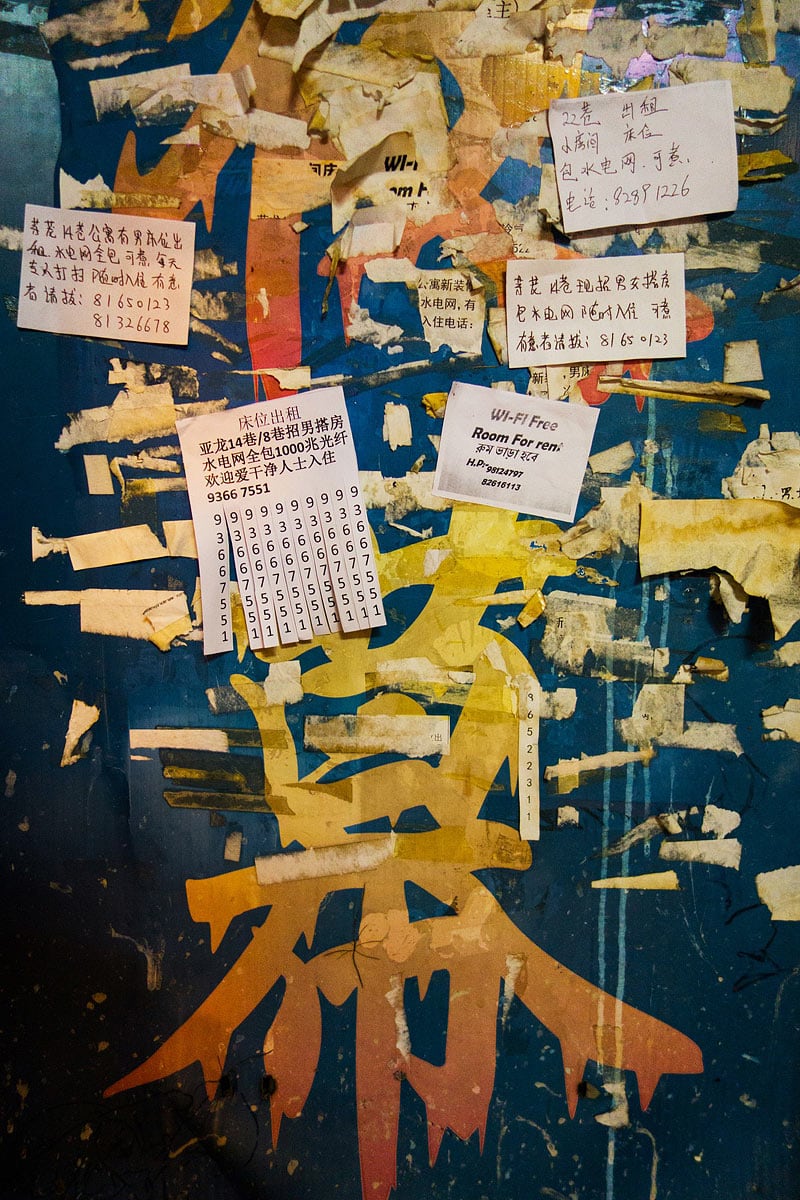 22巷 出租
小房间 床位
包水电网.可煮.
电话:82891226
WI-F
om F
芽茏14巷公寓有男床位出
租.水电网全包 可煮 每天
专人打扫 随时入住 有意
者请拨: 81650123
81326678
公寓新装修
水电网,有
入住电话:
芽茏 14巷 现招男女搭房
包水电网 随时入住 可煮
有意者请拨: 8165 0123
床位出租
亚龙14巷/8巷招男搭房
水电网全包1000兆光纤
欢迎爱干净人士入住
9366 7551
93667551
93667551
93667551
93667551
93667551
93667551
93667551
93667551
93667551
WI-FI Free
Room For rent
রুম ভাড়া হবে
H.P:-98124797
82616113
86522311
出